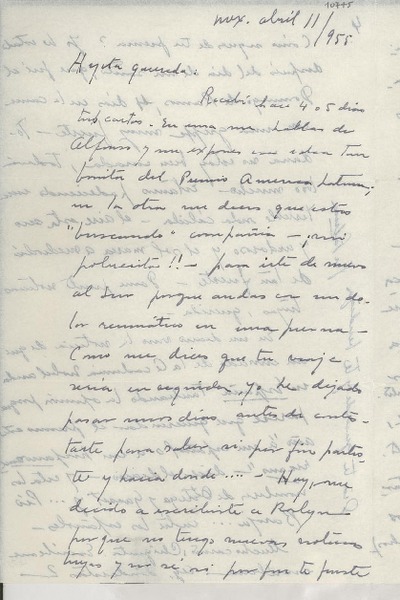 10775
mex. abril 11/955
querida.
Recibí, hace 4 o 5 días
tus cartas. En una me hablas de
Alfonso, y me expones esa idea tan
bonita del Premio America Latina;
en la otra me dices que estás
"buscando" compañía — ¡mi
pobrecita!! — para irte de nuevo
al Sur porque andas con un do-
lor reumático en una pierna —
Como me dices que tu viaje
sería en seguida, yo he dejado
pasar unos días antes de contes-
tarte para saber si por fin partes
te y hacia donde.... — Hoy, me
decido a escribirte a Roslyn
porque no tengo nuevas noticias
tuyas y no sé si por fin te fuiste